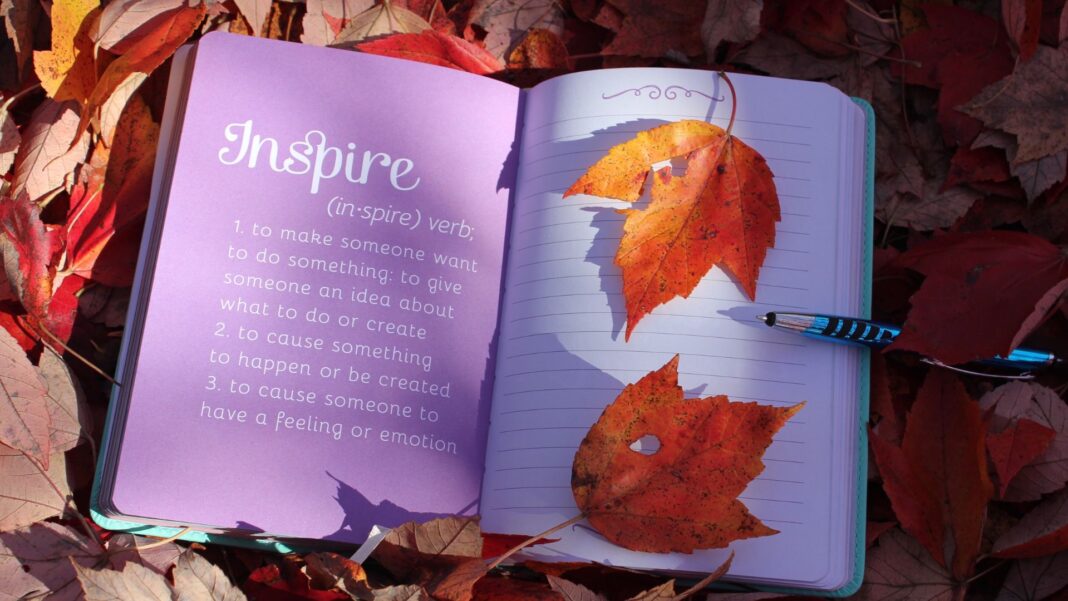 Inspire
(in·spire) verb;
1. to make someone want
to do something: to give
someone an idea about
what to do or create
2. to cause something
to happen or be created
3. to cause someone to
have a feeling or emotion